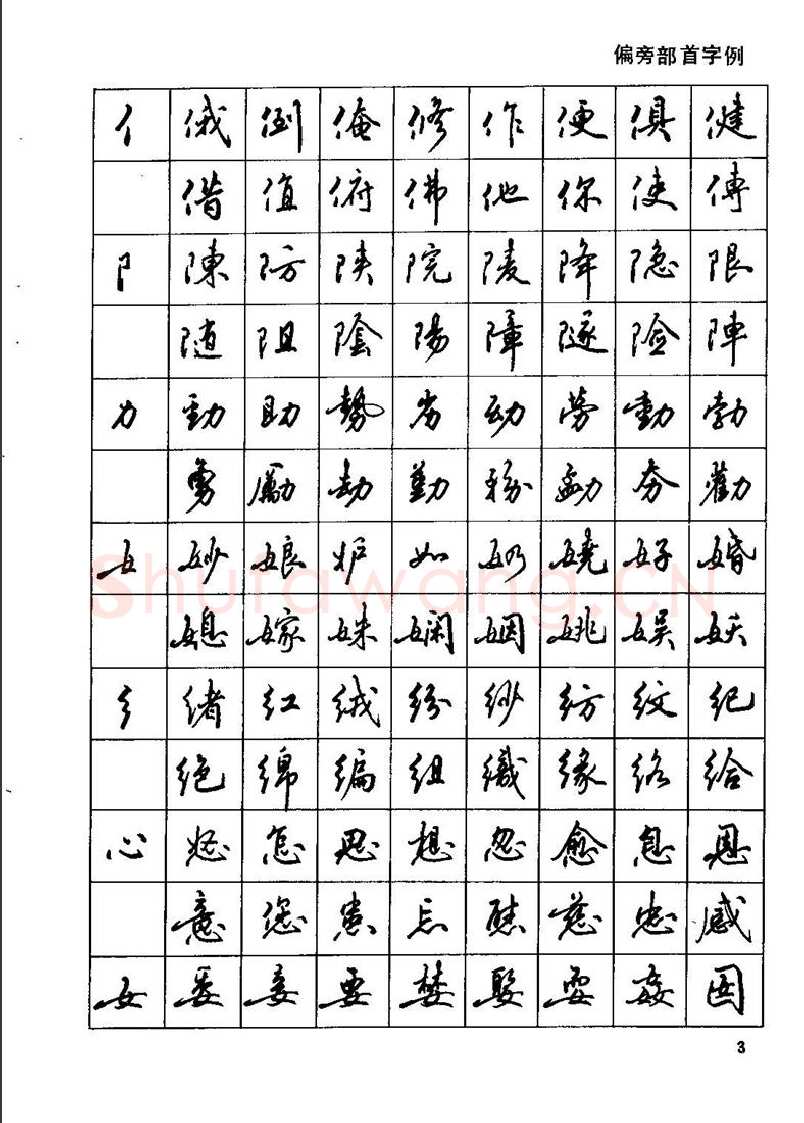 偏旁部首字例
亻 俄 倒 俺 修 作 便 俱 健
借 值 俯 佛 他 你 使 傅
阝 陳 防 陕 院 陵 降 隐 限
随 阻 陰 陽 障 隧 险 陣
力 動 助 勢 劣 幼 劳 勤 勃
勇 勵 劫 勤 劝 夯 勸
女 妙 娘 妒 如 奶 娆 好 婚
媳 嫁 妹 娴 姻 姚 娱 妖
纟 绪 红 绒 纷 纱 纺 纹 纪
绝 绵 编 组 織 缘 络 给
心 怒 怎 思 想 忽 愈 息 恩
意 您 患 忘 慈 忠 感
女 委 妾 要 婪 娶 耍 姦
Shufawang.CN
3